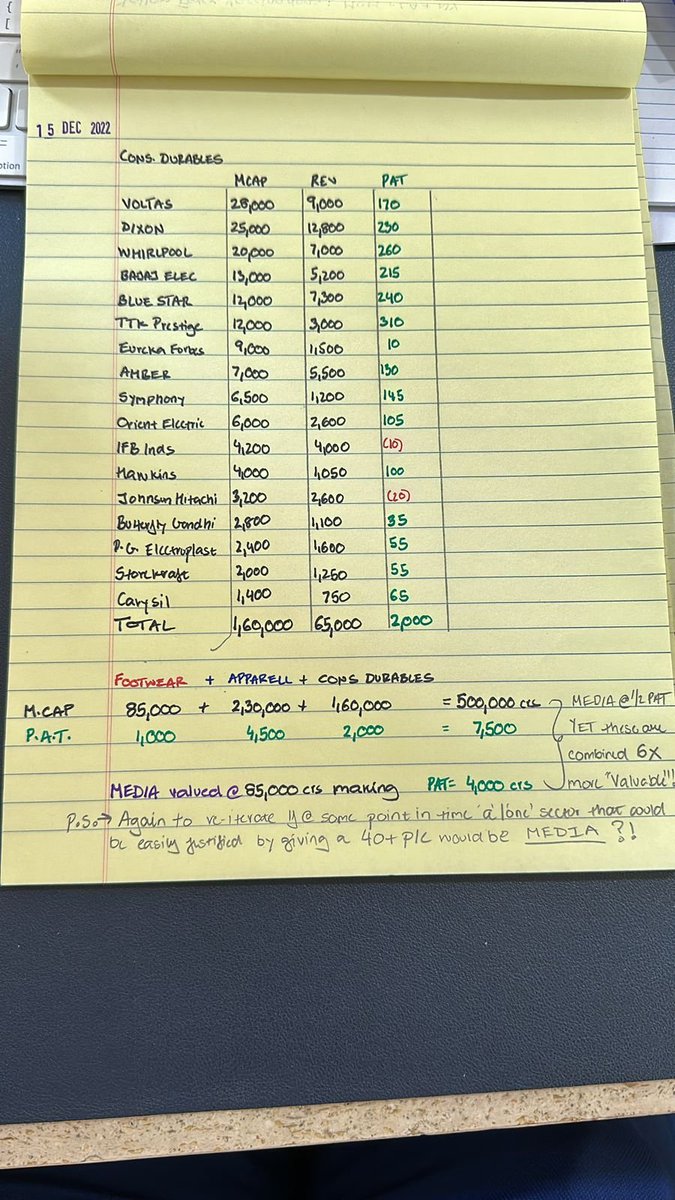 15 DEC 2022
CONS. DURABLES
MCAP REV PAT
VOLTAS 28,000 9,000 170
DIXON 25,000 12,800 230
WHIRLPOOL 20,000 7,000 260
BAJAJ ELEC 13,000 5,200 215
BLUE STAR 12,000 7,300 240
TTK Prestige 12,000 3,000 310
Eureka Forbes 9,000 1,500 10
AMBER 7,000 5,500 130
Symphony 6,500 1,200 145
Orient Electric 6,000 2,600 105
IFB Inds 4,200 4,000 (10)
Hawkins 4,000 1,050 100
Johnson Hitachi 3,200 2,600 (20)
Butterfly Gandhi 2,800 1,100 35
P.G. Electroplast 2,400 1,600 55
Storekraft 2,000 1,250 55
Carysil 1,400 750 65
TOTAL 1,60,000 65,000 2,000
FOOTWEAR + APPARELL + CONS DURABLES
M.CAP 85,000 + 2,30,000 + 1,60,000 = 500,000 crs
P.A.T. 1,000 4,500 2,000 = 7,500
MEDIA @ 1/2 PAT
YET these are
combined 6x
more "Valuable"!
MEDIA valued @ 85,000 crs making PAT = 4,000 crs
P.S. → Again to re-iterate if @ some point in time 'a' 'one' sector that could
be easily justified by giving a 40+ P/E would be MEDIA ?!
option